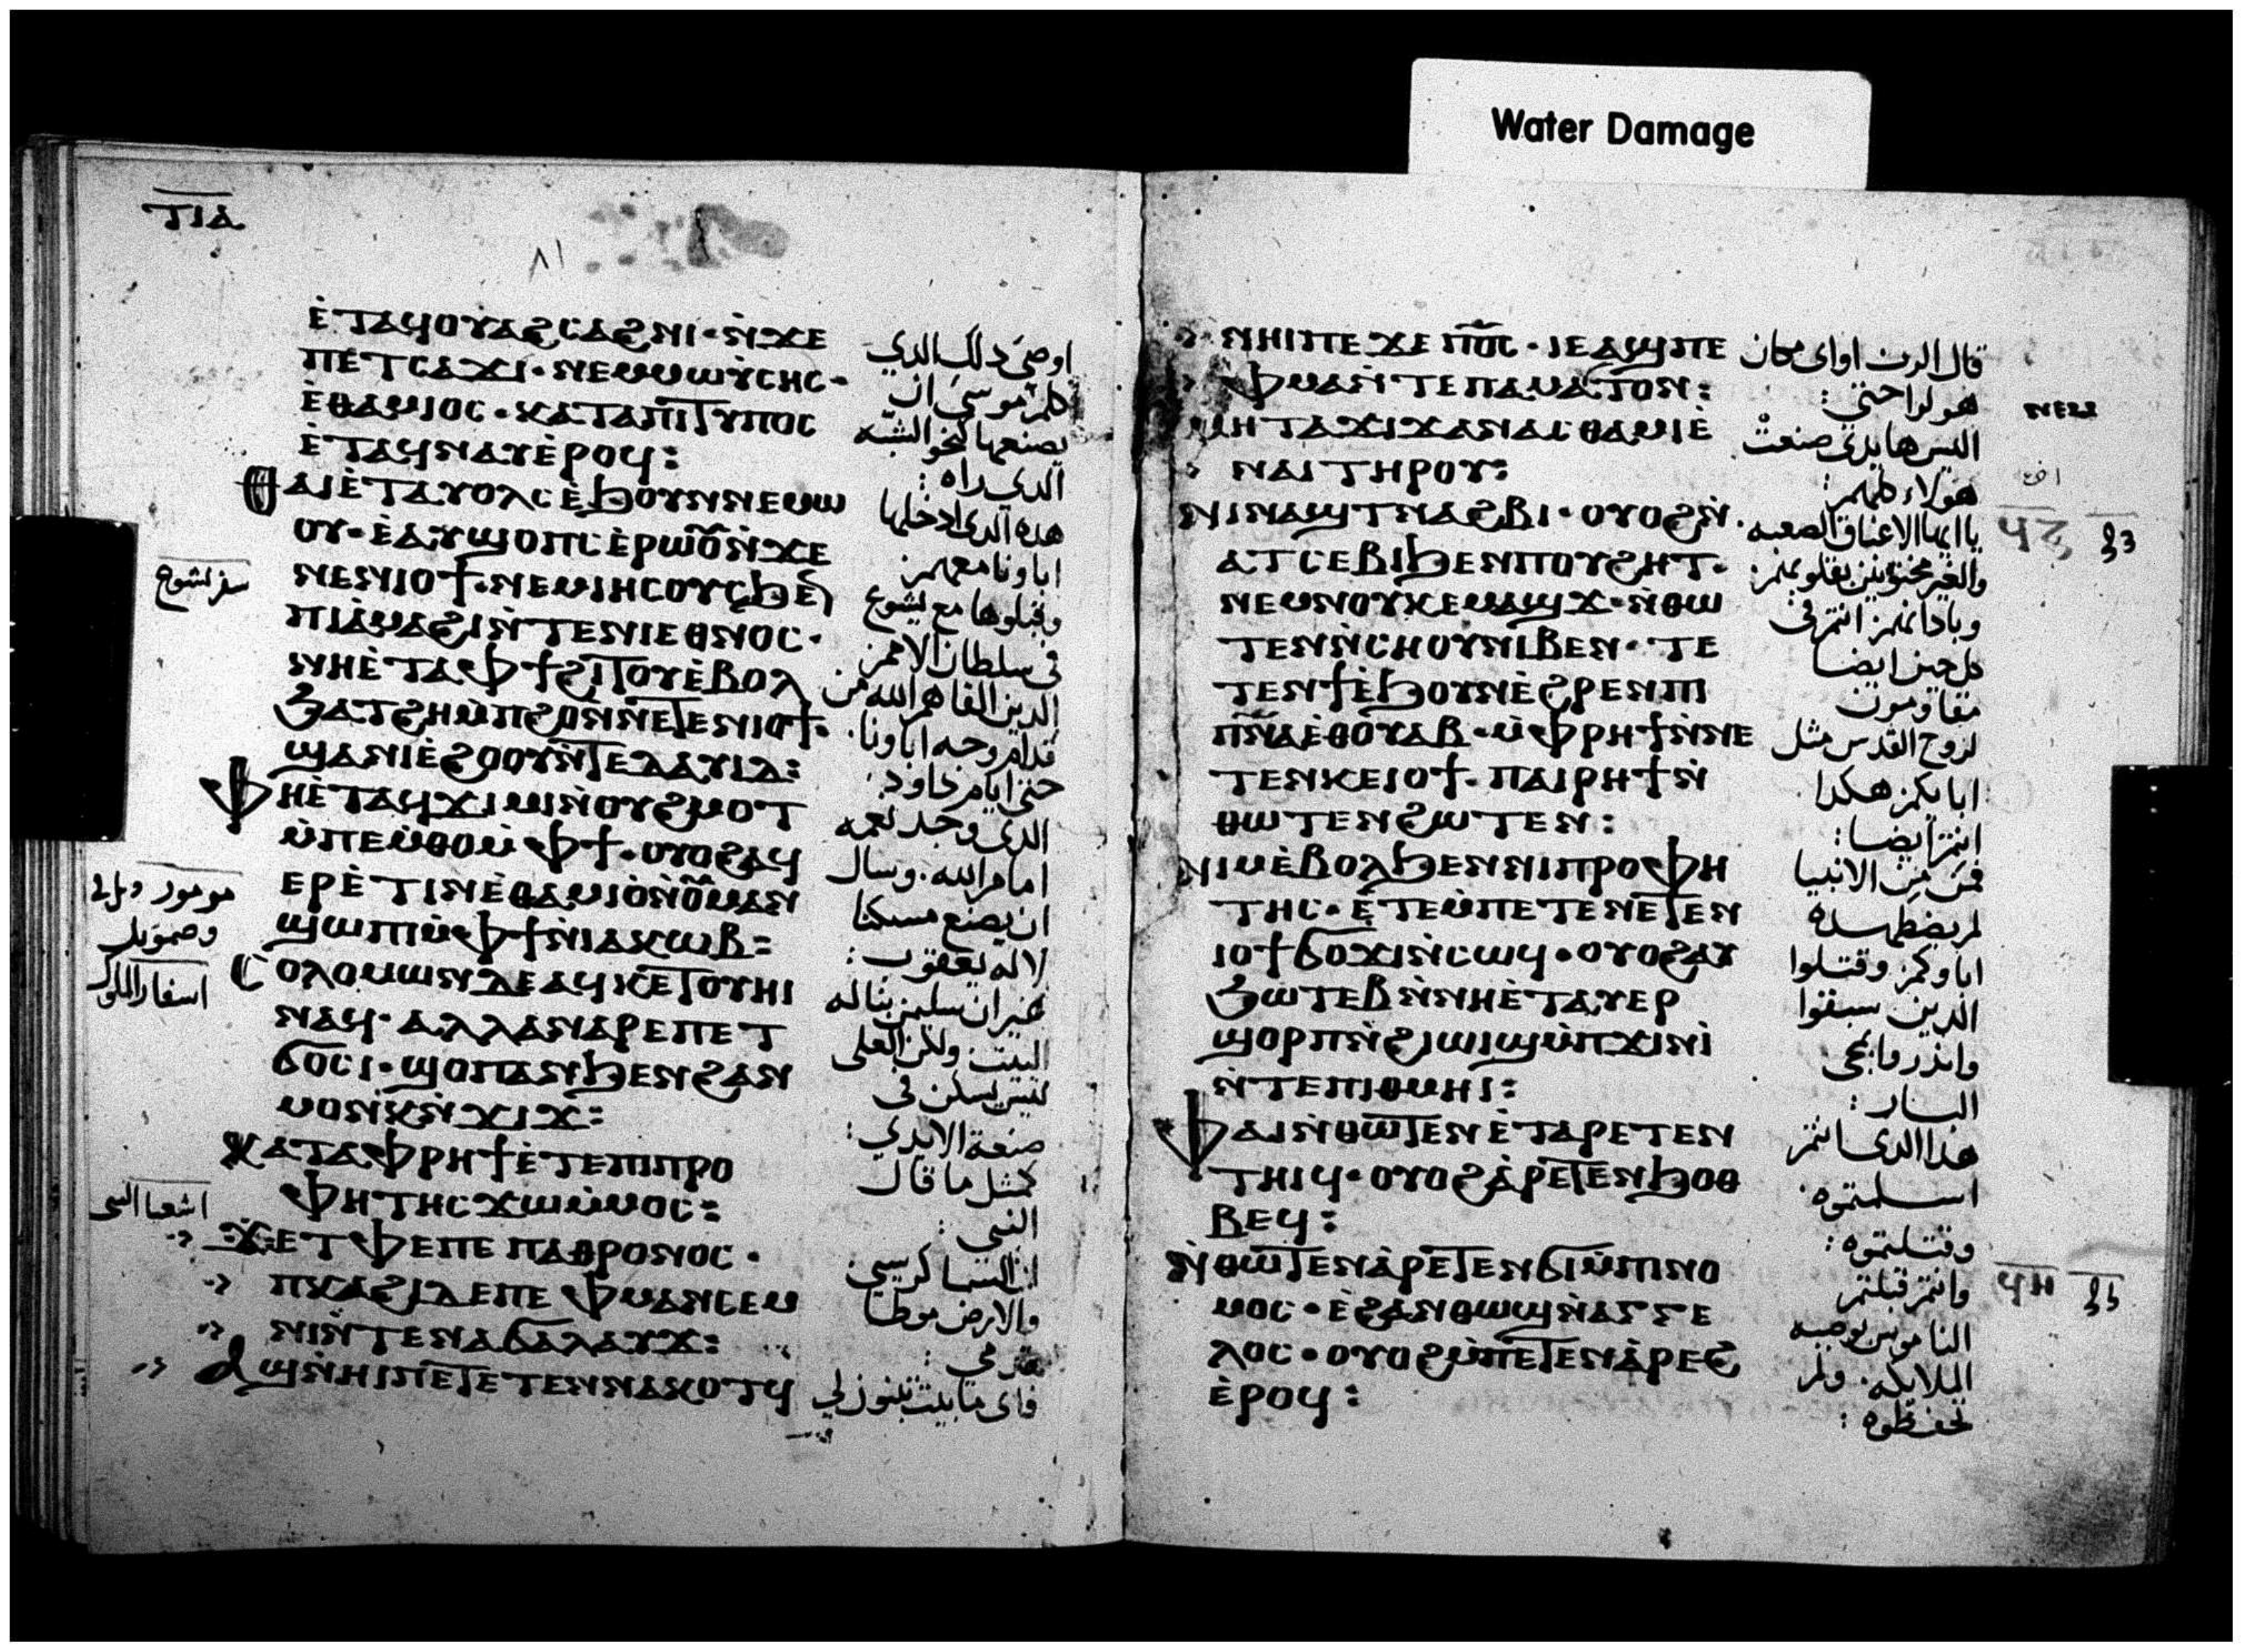 Water Damage
ⲧⲓⲁ
٨١
ⲉ̀ⲧⲁϥⲟⲩⲁϩⲥⲁϩⲛⲓ· ⲛ̀ϫⲉ
ⲡⲉⲧⲥⲁϫⲓ· ⲛⲉⲙⲙⲱⲩ̀ⲥⲏⲥ·
ⲉ̀ⲑⲁⲙⲓⲟⲥ· ⲕⲁⲧⲁⲡⲓⲧⲩⲡⲟⲥ
ⲉ̀ⲧⲁϥⲛⲁⲩⲉ̀ⲣⲟϥ:
ⲑⲁⲓⲉ̀ⲧⲁⲩⲟⲗⲥⲉ̀ϧⲟⲩⲛⲛⲉⲙⲱ
ⲟⲩ· ⲉ̀ⲁⲩϣⲟⲡⲥⲉ̀ⲣⲱⲟⲩⲛ̀ϫⲉ
ⲛⲉⲛⲓⲟϯ· ⲛⲉⲙⲓⲏⲥⲟⲩⲥϧⲉⲛ
ⲡⲓⲁ̀ⲙⲁϩⲓⲛ̀ⲧⲉⲛⲓⲉⲑⲛⲟⲥ·
ⲛⲏⲉ̀ⲧⲁⲫϯϩⲓⲧⲟⲩⲉ̀ⲃⲟⲗ
ϧⲁⲧϩⲏⲙ̀ⲡϩⲟⲛ̀ⲛⲉⲧⲉⲛⲓⲟϯ·
ϣⲁⲛⲓⲉ̀ϩⲟⲟⲩⲛ̀ⲧⲉⲇⲁⲩⲓⲇ:
ⲫⲏⲉ̀ⲧⲁϥϫⲓⲙⲓⲛ̀ⲟⲩϩⲙⲟⲧ
ⲙ̀ⲡⲉⲙ̀ⲑⲟⲙ̀ⲫϯ· ⲟⲩⲟϩⲁϥ
ⲉⲣⲉ̀ⲧⲓⲛⲉ̀ⲑⲁⲙⲓⲟ̀ⲛ̀ⲟⲩⲙⲁⲛ
ϣⲱⲡⲓⲙ̀ⲫϯⲛ̀ⲓⲁⲕⲱⲃ:
ⲥⲟⲗⲟⲙⲱⲛⲇⲉⲁϥⲕⲉⲧⲟⲩⲏⲓ
ⲛⲁϥ· ⲁⲗⲗⲁⲛⲁⲣⲉⲡⲉⲧ
ϭⲟⲥⲓ· ϣⲟⲡⲁⲛϧⲉⲛϩⲁⲛ
ⲙⲟⲛⲕⲛ̀ϫⲓϫ:
ⲕⲁⲧⲁⲫⲣⲏϯⲉ̀ⲧⲉⲡⲓⲡⲣⲟ
ⲫⲏⲧⲏⲥϫⲱⲙ̀ⲙⲟⲥ:
ϫⲉⲧⲫⲉⲡⲉ ⲡⲁⲑⲣⲟⲛⲟⲥ·
ⲡⲕⲁϩⲓⲇⲉⲡⲉ ⲫⲙⲁⲛⲥⲉⲙ
ⲛⲓⲛ̀ⲧⲉⲛⲁϭⲁⲗⲁⲩϫ:
ⲁϣⲛ̀ⲏⲓⲡⲉⲧⲉⲧⲉⲛⲛⲁⲕⲟⲧϥ
اوصى ذلك الدي
كلم موسى ان
يصنعها نحو الشبه
الدي راه:
هده الدي ادخلها
اباونا معهم
وقبلوها مع يشوع
في سلطان الامم
الدين الفاهم الله من
قدام وجه اباونا.
حتى ايام داود:
الدي وجد نعمه
امام الله. وسال
ان يصنع مسكنا
لاله يعقوب:
غير ان سليمن بنا له
البيت. ولكن العلى
ليس يسكن في
صنعة الايدي:
كمثل ما قال
النبي:
ان السما كرسيي
والارض موطا
قدمي:
فاى ما بيت تبنون لي
سفر يشوع
وصمويل
اسفار الملوك
اشعيا النبي
ⲛⲏⲓⲡⲉϫⲉ ⲡϭⲥ· ⲓⲉⲁϣⲡⲉ
ⲫⲙⲁⲛ̀ⲧⲉⲡⲁⲙⲁⲧⲟⲛ:
ⲙⲏⲧⲁϫⲓϫⲁⲛⲁⲥⲑⲁⲙⲓⲉ̀
ⲛⲁⲓⲧⲏⲣⲟⲩ:
ⲛⲓⲛⲁϣⲧⲛⲁϩⲃⲓ· ⲟⲩⲟϩⲛ̀
ⲁⲧⲥⲉⲃⲓϧⲉⲛⲡⲟⲩϩⲏⲧ·
ⲛⲉⲙⲛⲟⲩⲕⲉⲙⲁϣϫ· ⲛ̀ⲑⲱ
ⲧⲉⲛⲛ̀ⲥⲏⲟⲩⲛⲓⲃⲉⲛ· ⲧⲉ
ⲧⲉⲛϯⲉ̀ϧⲟⲩⲛⲉ̀ϩⲣⲉⲛⲡⲓ
ⲡⲛⲁⲉ̀ⲑⲟⲩⲁⲃ· ⲙ̀ⲫⲣⲏϯⲛ̀ⲛⲉ
ⲧⲉⲛⲕⲉⲓⲟϯ· ⲡⲁⲓⲣⲏϯⲛ̀
ⲑⲱⲧⲉⲛϩⲱⲧⲉⲛ:
ⲛⲓⲙⲉ̀ⲃⲟⲗϧⲉⲛⲛⲓⲡⲣⲟⲫⲏ
ⲧⲏⲥ· ⲉ̀ⲧⲉⲙ̀ⲡⲉⲧⲉⲛⲉⲧⲉⲛ
ⲓⲟϯϭⲟϫⲓⲛ̀ⲥⲱϥ· ⲟⲩⲟϩⲁⲩ
ϧⲱⲧⲉⲃⲛ̀ⲛⲏⲉ̀ⲧⲁⲩⲉⲣ
ϣⲟⲣⲡⲛ̀ϩⲓⲱⲓϣⲙ̀ⲡϫⲓⲛⲓ̀
ⲛ̀ⲧⲉⲡⲓⲑⲙⲏⲓ:
ⲫⲁⲓⲛ̀ⲑⲱⲧⲉⲛⲉ̀ⲧⲁⲣⲉⲧⲉⲛ
ⲧⲏⲓϥ· ⲟⲩⲟϩⲁ̀ⲣⲉⲧⲉⲛϧⲟⲑ
ⲃⲉϥ:
ⲛ̀ⲑⲱⲧⲉⲛⲁ̀ⲣⲉⲧⲉⲛϭⲓⲙ̀ⲡⲓⲛⲟ
ⲙⲟⲥ· ⲉ̀ϩⲁⲛⲑⲱϣⲛ̀ⲁⲅⲅⲉ
ⲗⲟⲥ· ⲟⲩⲟϩⲙ̀ⲡⲉⲧⲉⲛⲁ̀ⲣⲉϩ
ⲉ̀ⲣⲟϥ:
قال الرب او اى مكان
هو لراحتي:
اليس هايدي صنعت
هولاء كلهم:
يا ايها الاعناق الصعبه
والغير مختونين بقلوبهم
وباذانهم انتم في
كل حين ايضا
مقاومون
لروح القدس مثل
ابايكم هكدا
انتم ايضا:
فمن من الانبيا
لم يضطهده
اباوكم وقتلوا
الدين سبقوا
وانذروا بمجى
البار:
هدا الدى انتم
اسلمتموه.
وقتلتموه:
وانتم قبلتم
الناموس بوصيه
الملايكه. ولم
تحفظوه:
ⲛⲉⲙ